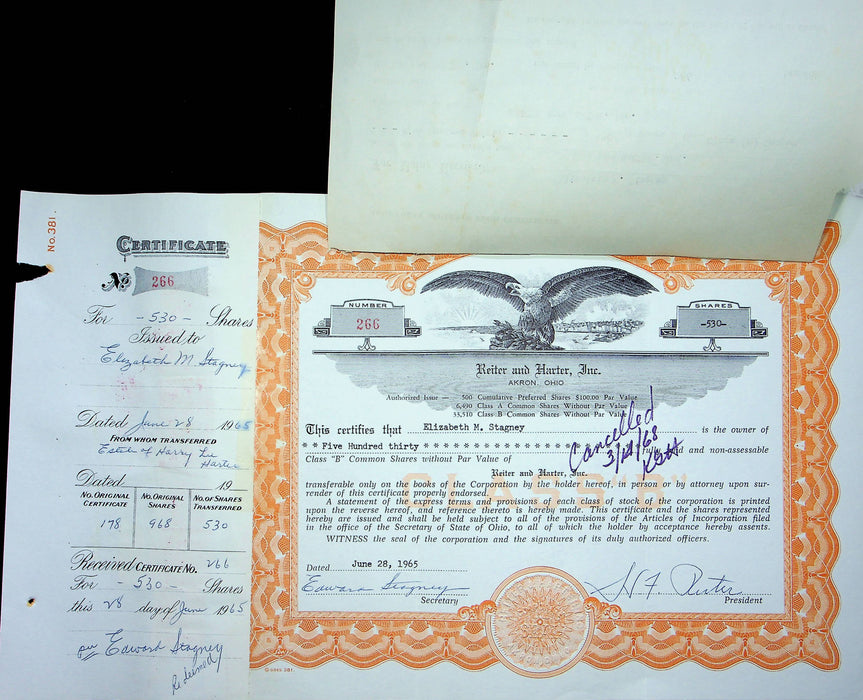 No. 381.
CERTIFICATE
No 266
For - 530 - Shares
Issued to
Elizabeth M. Stagney
Dated June 28 1965
FROM WHOM TRANSFERRED
Estate of Harry Lee
Harter
Dated 19
NO. ORIGINAL CERTIFICATE NO. ORIGINAL SHARES NO. OF SHARES TRANSFERRED
178 968 530
Received CERTIFICATE NO. 266
For - 530 - Shares
this 28 day of June 1965
per Edward Stagney
Redeemed
NUMBER
266
SHARES
-530-
Reiter and Harter, Inc.
AKRON, OHIO
Authorized Issue — 500 Cumulative Preferred Shares $100.00 Par Value
6,490 Class A Common Shares Without Par Value
33,510 Class B Common Shares Without Par Value
This certifies that Elizabeth M. Stagney is the owner of
* * Five Hundred thirty * * * * * * * * * * * * * * * * fully paid and non-assessable
Class "B" Common Shares without Par Value of
Cancelled
3/29/68
CLASS B
Reiter and Harter, Inc.
transferable only on the books of the Corporation by the holder hereof, in person or by attorney upon sur-
render of this certificate properly endorsed.
A statement of the express terms and provisions of each class of stock of the corporation is printed
upon the reverse hereof, and reference thereto is hereby made. This certificate and the shares represented
hereby are issued and shall be held subject to all of the provisions of the Articles of Incorporation filed
in the office of the Secretary of State of Ohio, to all of which the holder by acceptance hereby assents.
WITNESS the seal of the corporation and the signatures of its duly authorized officers.
Dated June 28, 1965
Edward Stagney H F Reiter
Secretary President
© GOES 381.